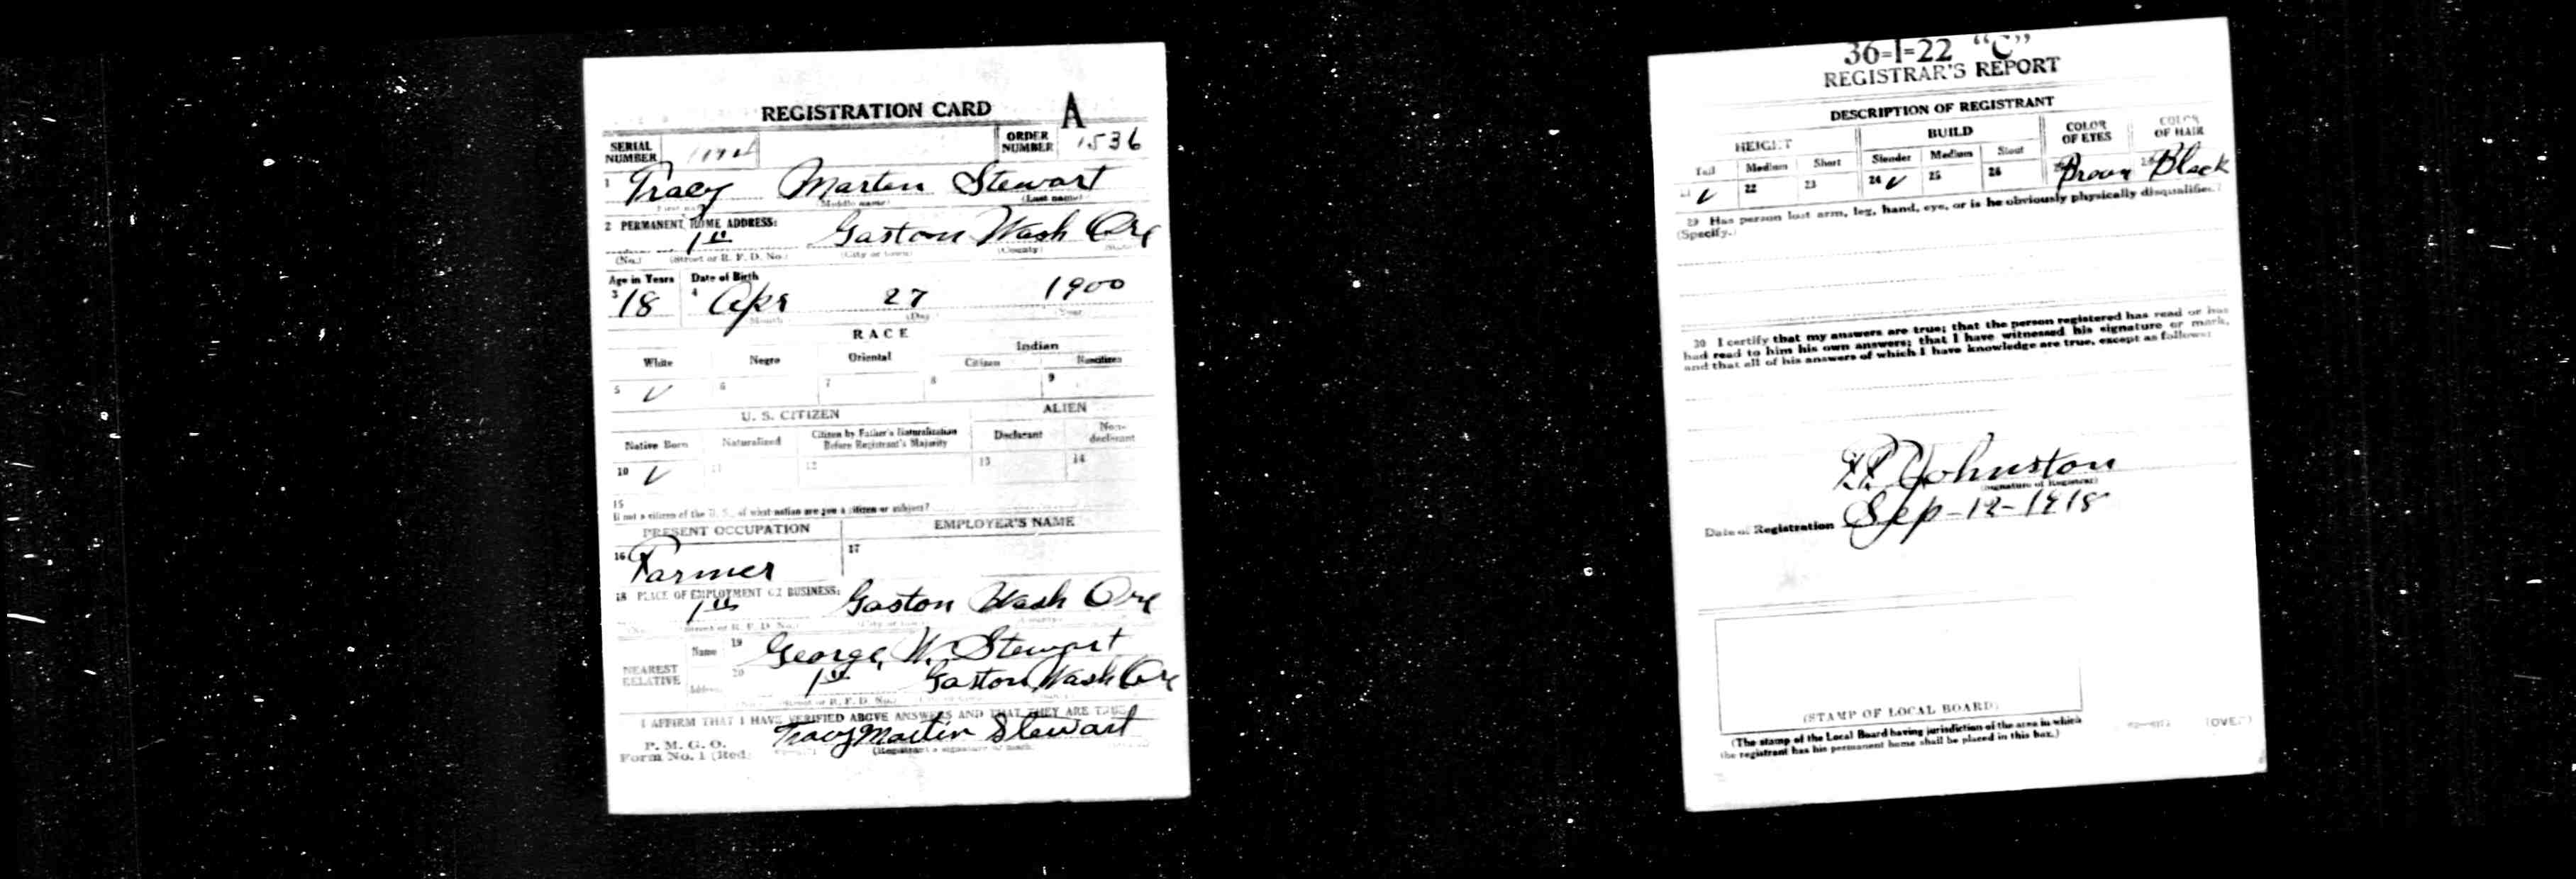 REGISTRATION CARD A
SERIAL NUMBER
ORDER NUMBER 1536
1 Tracy Marten Stewart
(Middle name) (Last name)
2 PERMANENT HOME ADDRESS:
1st Gaston Wash Ore
(No.) (Street or R. F. D. No.) (City or town) (County)
Age in Years Date of Birth
3 18 4 Apr 27 1900
Month (Day) Year
RACE
White Negro Oriental Indian
Citizen Noncitizen
5 ✓ 6 7 8 9
U. S. CITIZEN ALIEN
Native Born Naturalized Citizen by Father's Naturalization Before Registrant's Majority Declarant Non-declarant
10 ✓ 11 12 13 14
15
If not a citizen of the U. S., of what nation are you a citizen or subject?
PRESENT OCCUPATION EMPLOYER'S NAME
16 Farmer 17
18 PLACE OF EMPLOYMENT OR BUSINESS:
1st Gaston Wash Ore
NEAREST RELATIVE
Name 19 George W. Stewart
Address 20 1st Gaston Wash Ore
(Street or R. F. D. No.)
I AFFIRM THAT I HAVE VERIFIED ABOVE ANSWERS AND THAT THEY ARE TRUE
P. M. G. O.
Form No. 1 (Red)
Tracy Martin Stewart
(Registrant's signature or mark)
36-1-22 "C"
REGISTRAR'S REPORT
DESCRIPTION OF REGISTRANT
HEIGHT BUILD COLOR OF EYES COLOR OF HAIR
Tall Medium Short Slender Medium Stout
21 ✓ 22 23 24 ✓ 25 26 Brown Black
29 Has person lost arm, leg, hand, eye, or is he obviously physically disqualified?
(Specify.)
30 I certify that my answers are true; that the person registered has read or has
had read to him his own answers; that I have witnessed his signature or mark,
and that all of his answers of which I have knowledge are true, except as follows:
Johnston
(Signature of Registrar)
Date of Registration Sep-12-1918
(STAMP OF LOCAL BOARD)
(The stamp of the Local Board having jurisdiction of the area in which
the registrant has his permanent home shall be placed in this box.)
(OVER)